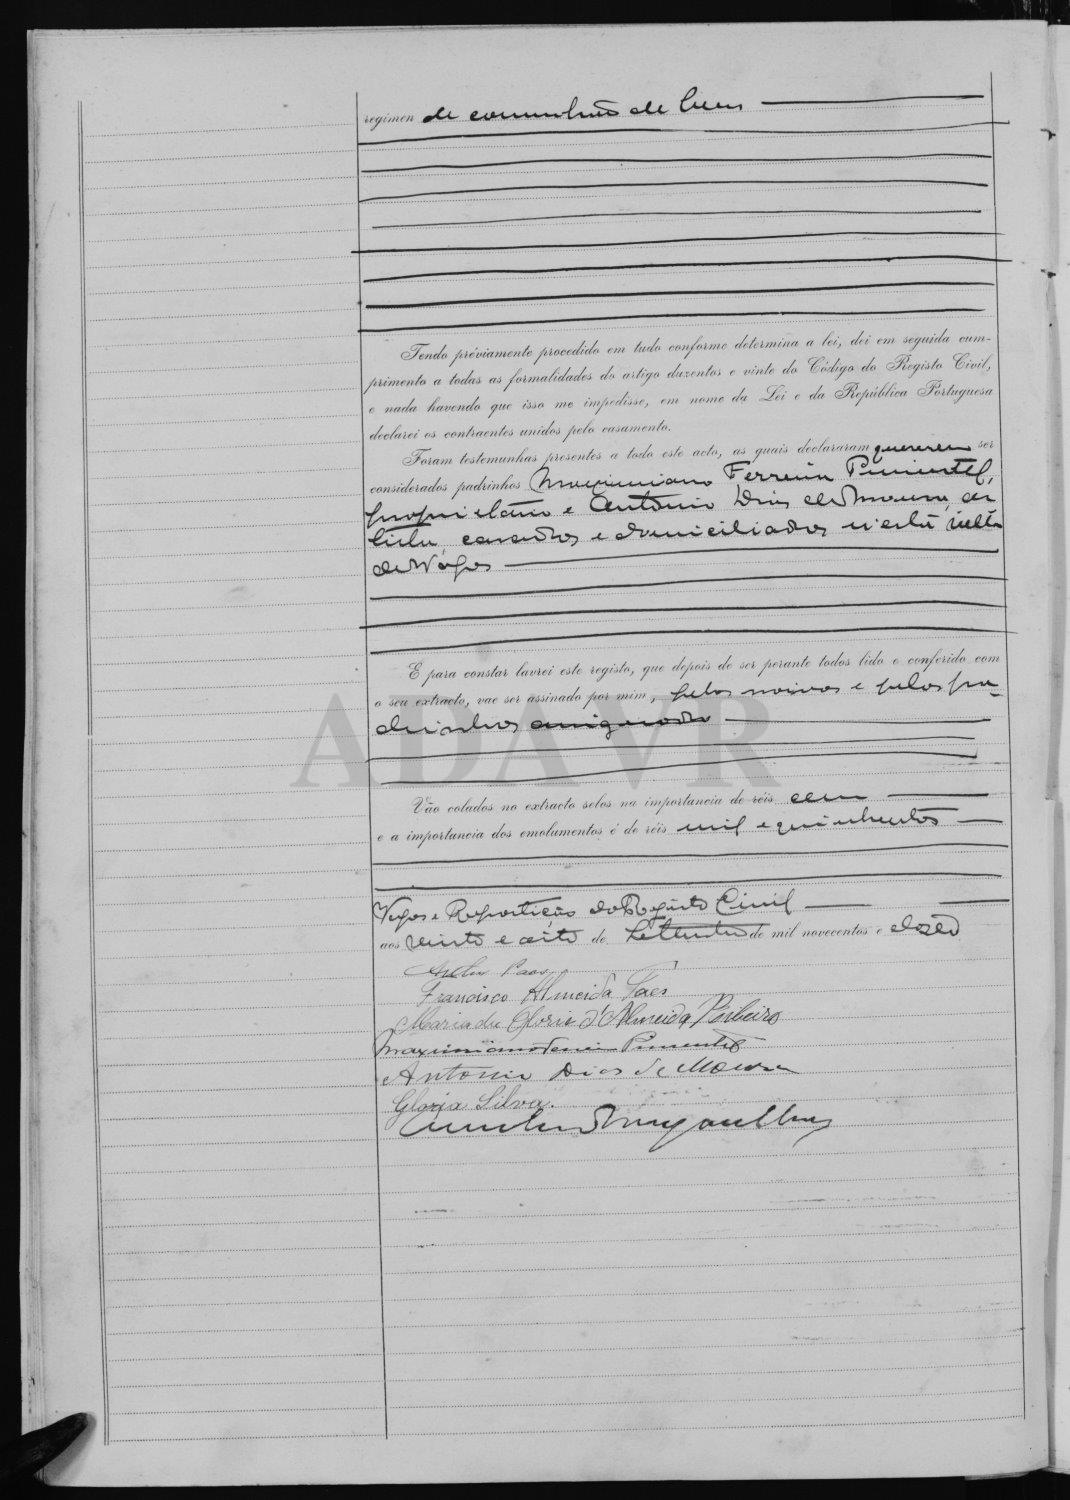 regimen de comunhão de bens
Tendo préviamente procedido em tudo conforme determina a lei, dei em seguida cum-
primento a todas as formalidades do artigo duzentos e vinte do Código do Registo Civil,
e nada havendo que isso me impedisse, em nome da Lei e da República Portuguesa
declarei os contraentes unidos pelo casamento.
Foram testemunhas presentes a todo este acto, as quais declararam quererem ser
considerados padrinhos Maximiano Ferreira Pimentel,
proprietario e Antonio Dias de Moura, ar
tista, casados e domiciliados n'esta villa
de Vagos
E para constar lavrei este registo, que depois de ser perante todos lido e conferido com
o seu extracto, vae ser assinado por mim, pelos noivos e pelos pa-
drinhos
ADAVR
Vão colados no extracto selos na importancia de réis cem
e a importancia dos emolumentos é de réis mil e quinhentos
Vagos e Repartição do Registo Civil
aos vinte e oito de Setembro de mil novecentos e doze
Francisco Almeida Paes
Maria da Gloria d'Almeida Ribeiro
Maximiano Ferreira Pimentel
Antonio Dias de Moura
Gloria Silva.